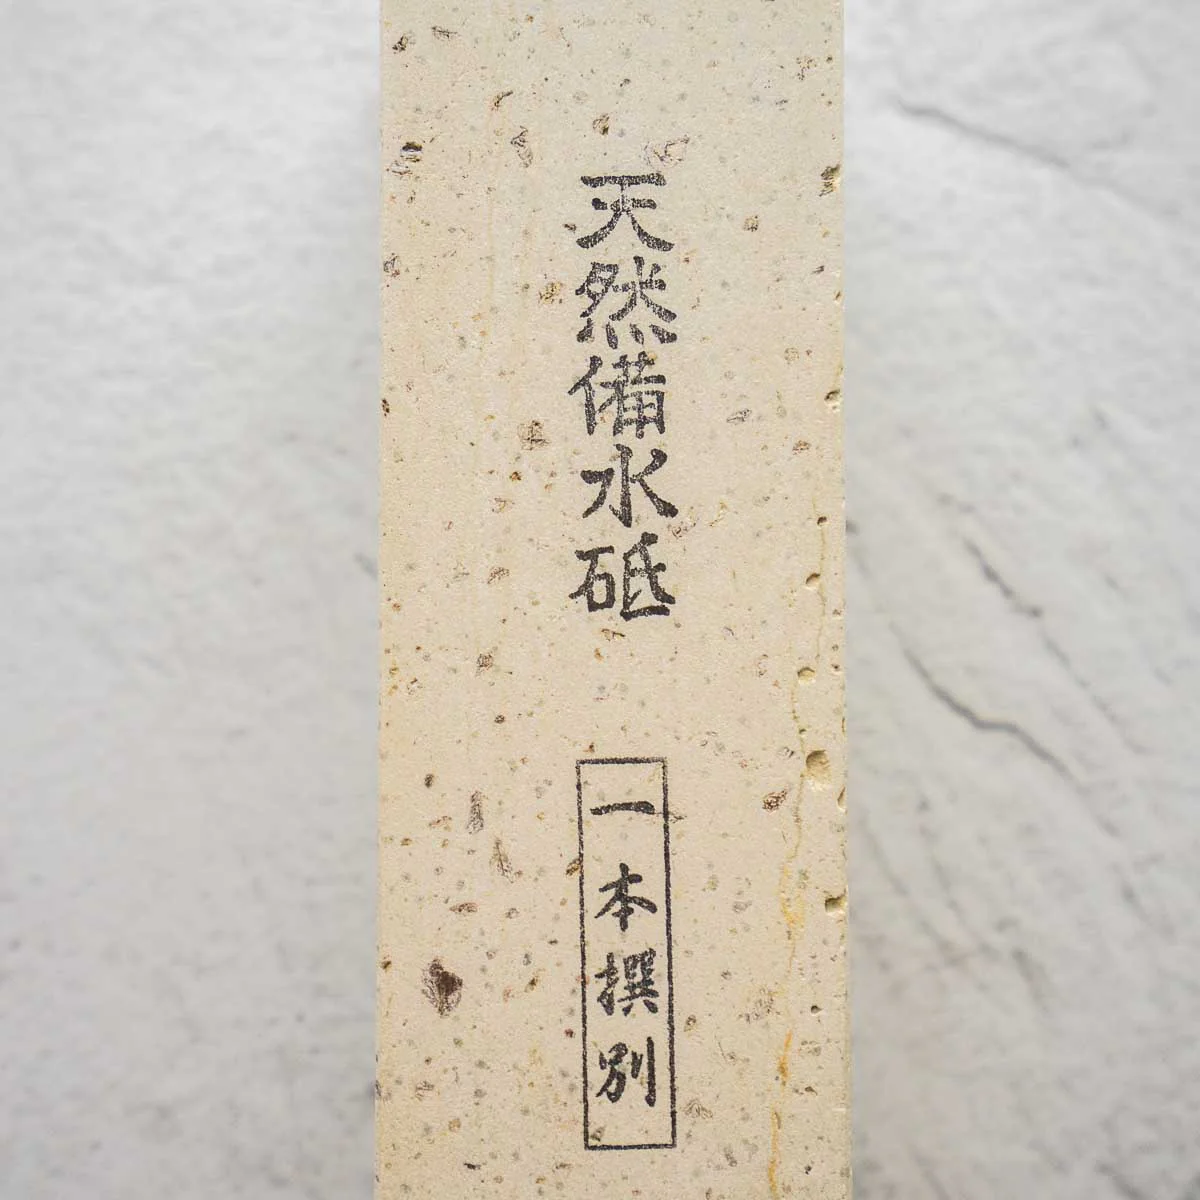 天然備水砥
一本撰別